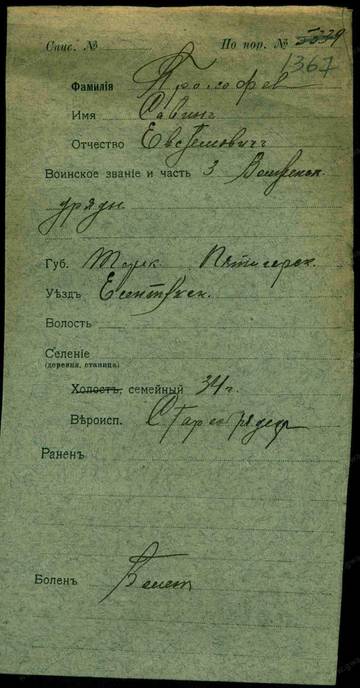 Спис. № По пор. № 5339
1367
Фамилія
Имя Савинъ
Отчество Евстемовичъ
Воинское званіе и часть 3
уряды
Губ. Терск Пятигорск.
Уѣздъ Есентукск.
Волость
Селеніе
(деревня, станица)
Холостъ, семейный 34 г.
Вѣроисп. Старообрядец
Раненъ
Боленъ